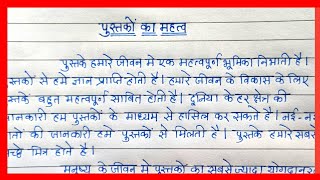 पुस्तकों का महत्व
पुस्तके हमारे जीवन मे एक महत्वपूर्ण भूमिका निभाती है।
स्तकों से हमे ज्ञान प्राप्ति होती है। हमारे जीवन के विकास के लिए
स्तके बहुत महत्वपूर्ण साबित होती है। दुनिया के हर क्षेत्र की
जानकारी हम पुस्तकों के माध्यम से हासिल कर सकते है। नई-नई
की जानकारी हमे पुस्तकों से मिलती है। पुस्तके हमारे सबसे
मित्र होते है।
मनुष्य के जीवन मे पुस्तकों का सबसे ज्यादा योगदान